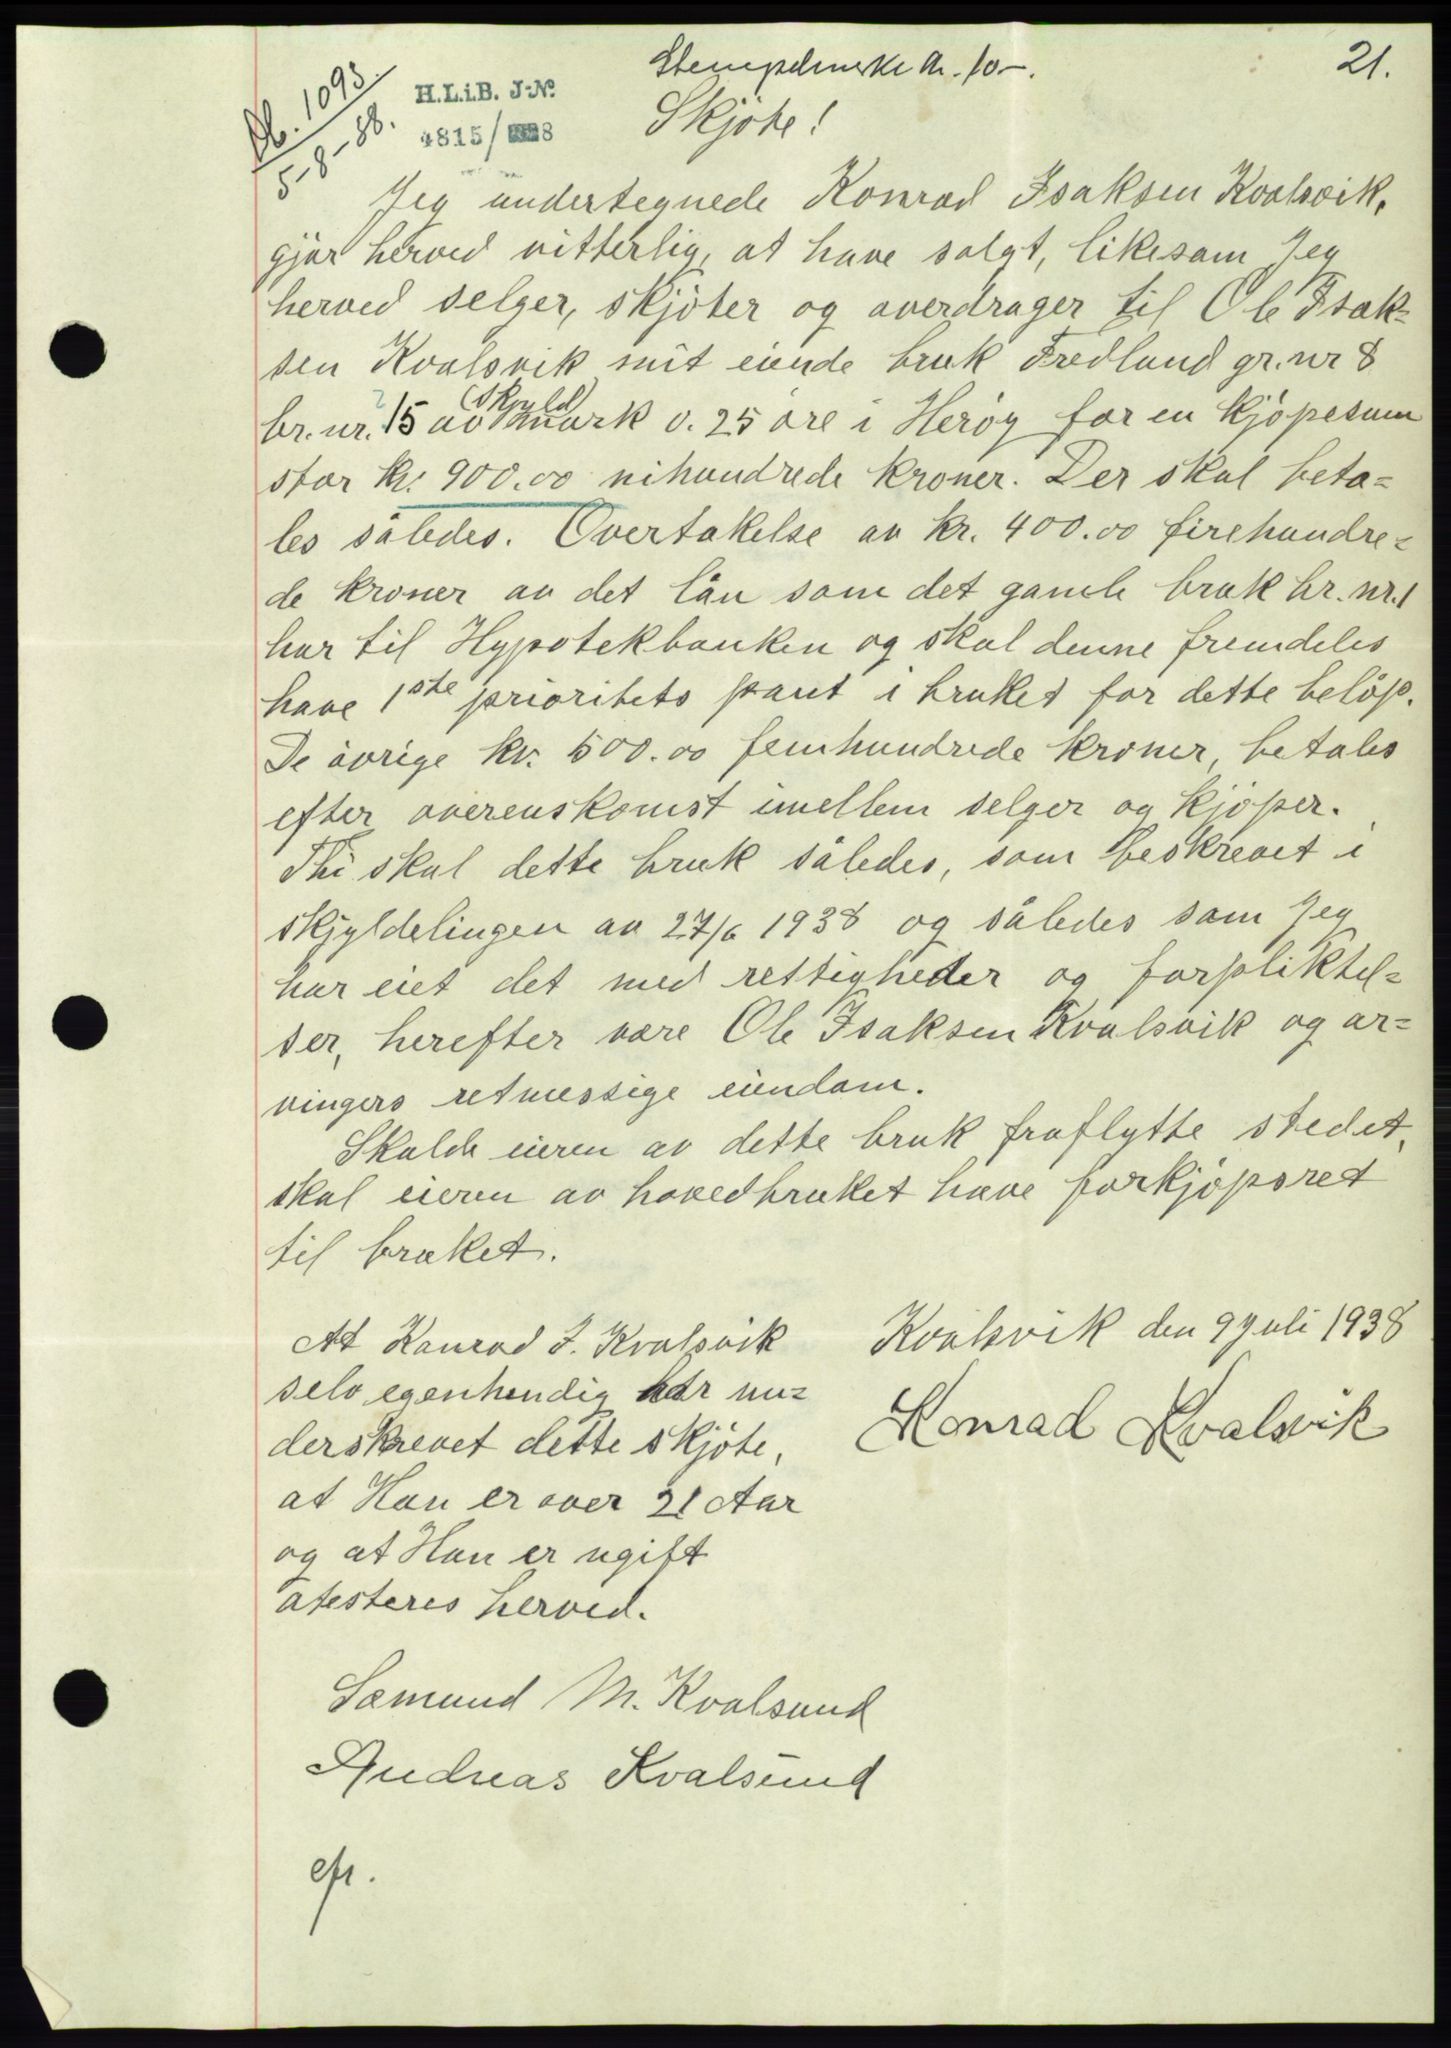 Stempelmerke kr. 10-.
21.
Db. 1093.
5-8-38.
H.L.i.B. J-No.
4815/ 8
Skjöte!
Jeg undertegnede Konrad Isaksen Kvalsvik,
gjør herved vitterlig, at have solgt, likesom Jeg
herved selger, skjöter og overdrager til Ole Isak=
sen Kvalsvik mit eiende bruk Fredlund gr. nr 8
br. nr. 15 av (skyld) mark 0.25 øre i Herøy for en kjöpesum
stor kr. 900.00 nihundrede kroner. Der skal beta=
les således. Overtakelse av kr. 400.00 firehundre=
de kroner av det lån som det gamle bruk br. nr. 1
har til Hypotekbanken og skal denne fremdeles
have 1ste prioritets pant i bruket for dette belöp.
De övrige kr. 500.00 femhundrede kroner, betales
efter overenskomst imellem selger og kjöper.
Thi skal dette bruk således, som beskrevet i
skjyldelingen av 27/6 1938 og således som Jeg
har eiet det med rettigheder og forpliktel=
ser, herefter være Ole Isaksen Kvalsvik og ar=
vingers retmessige eiendom.
Skulde eieren av dette bruk fraflytte stedet,
skal eieren av hovedbruket have forkjöpsret
til bruket.
Kvalsvik den 9 Juli 1938
Konrad Kvalsvik
At Konrad I. Kvalsvik
selv egenhendig har un=
derskrevet dette skjöte,
at Han er over 21 Aar
og at Han er ugift
atesteres herved.
Sæmund M. Kvalsund
Andreas Kvalsund